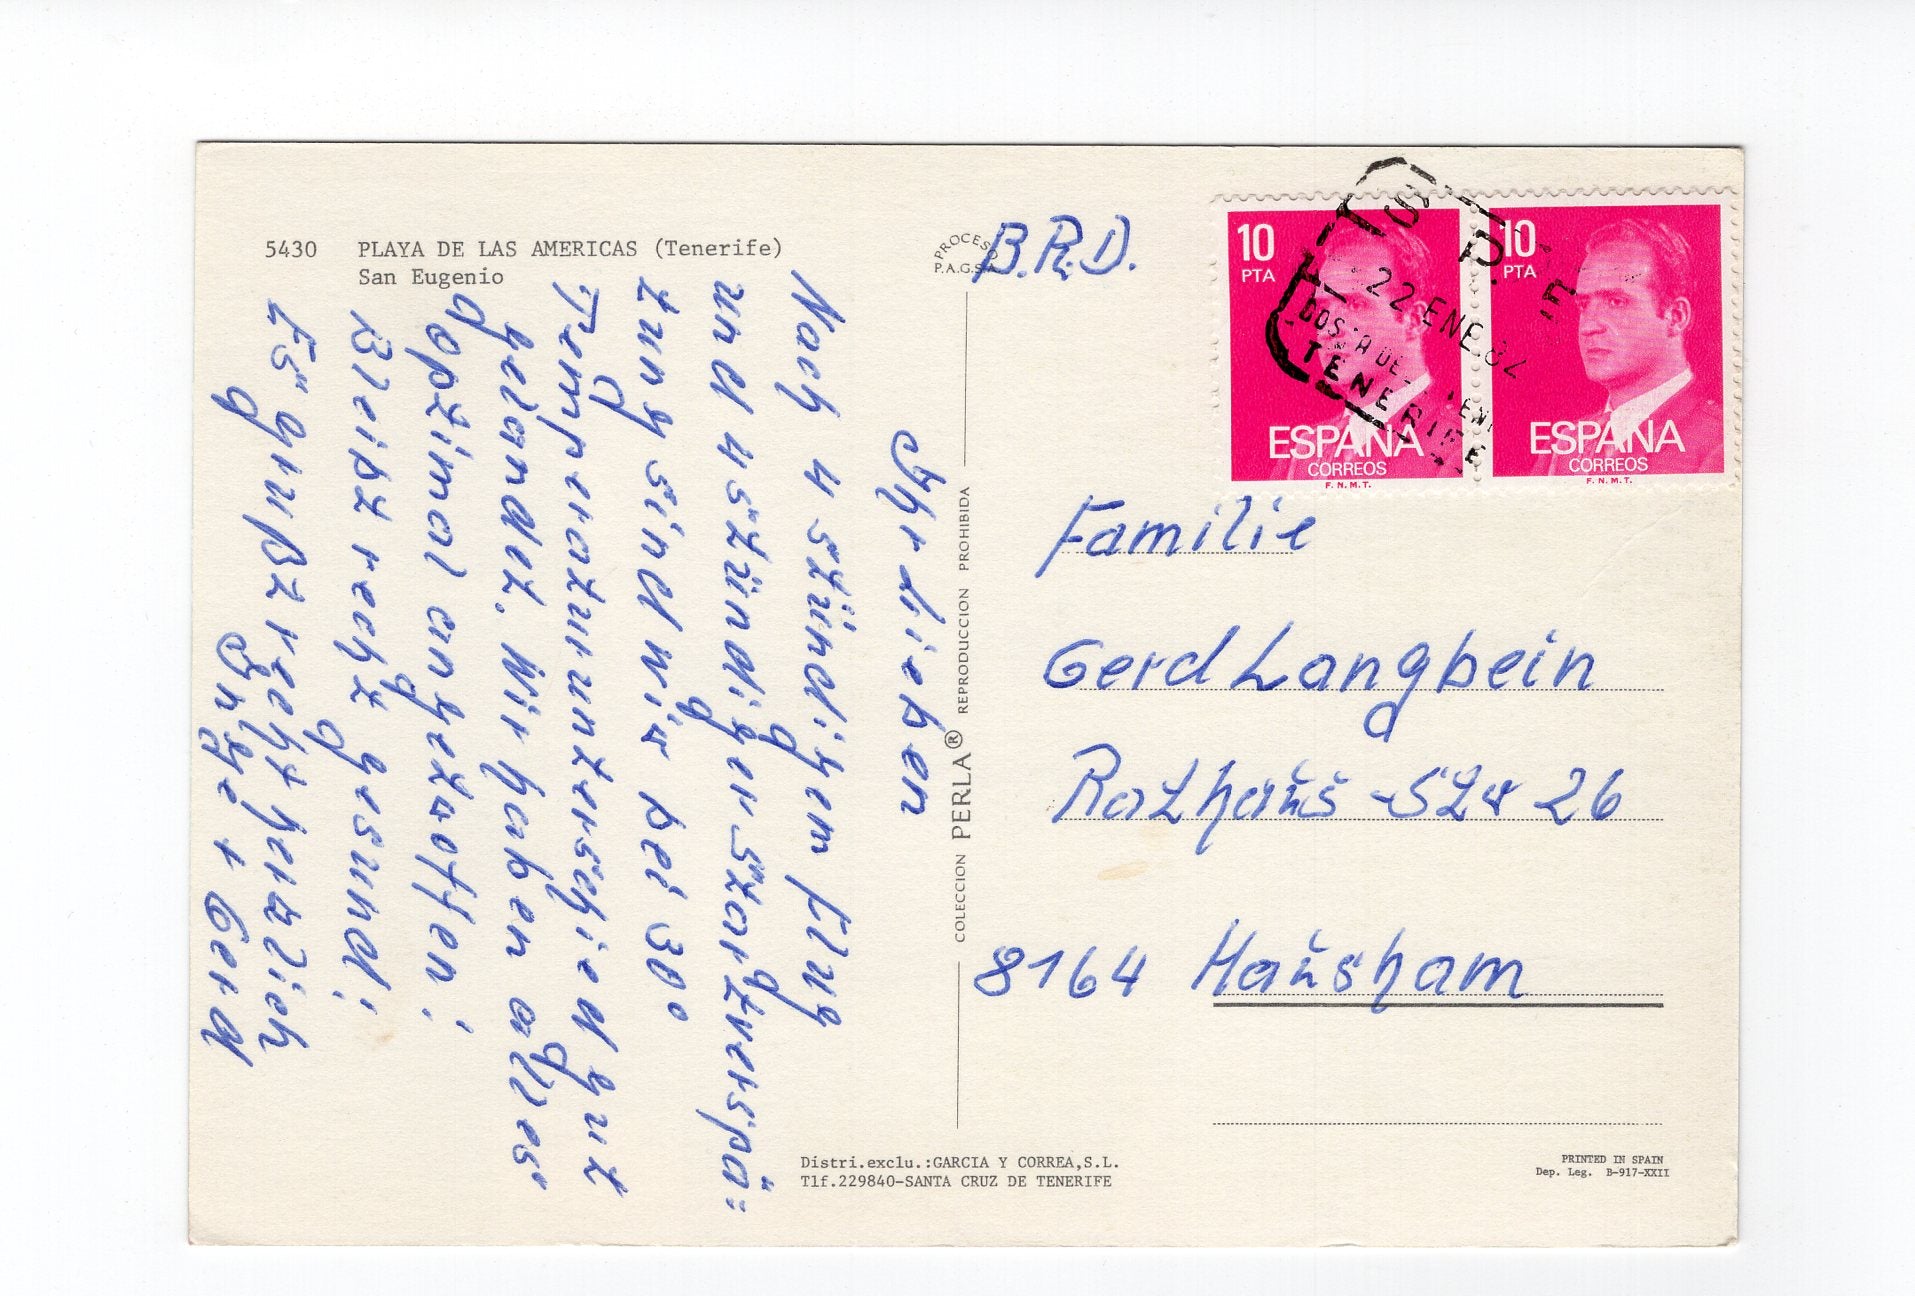 5430 PLAYA DE LAS AMERICAS (Tenerife)
San Eugenio
Ihr lieben
Nach 4 stündigem Flug
und 4 stündiger Startverspä=
tung sind wir bei 30°
Temperaturunterschied gut
gelandet. Wir haben alles
optimal angetroffen!
Bleibt recht gesund!
Es grüßt recht herzlich
Inge + Gerd
PROCESO
P.A.G.S.A
COLECCION PERLA® REPRODUCCION PROHIBIDA
B.R.D.
10
PTA
ESPAÑA
CORREOS
F.N.M.T.
10
PTA
ESPAÑA
CORREOS
F.N.M.T.
22 ENE. 82
TENERIFE
Familie
Gerd Langbein
Rathaus-Str 26
8164 Hausham
Distri.exclu.:GARCIA Y CORREA,S.L.
Tlf.229840-SANTA CRUZ DE TENERIFE
PRINTED IN SPAIN
Dep. Leg. B-917-XXII